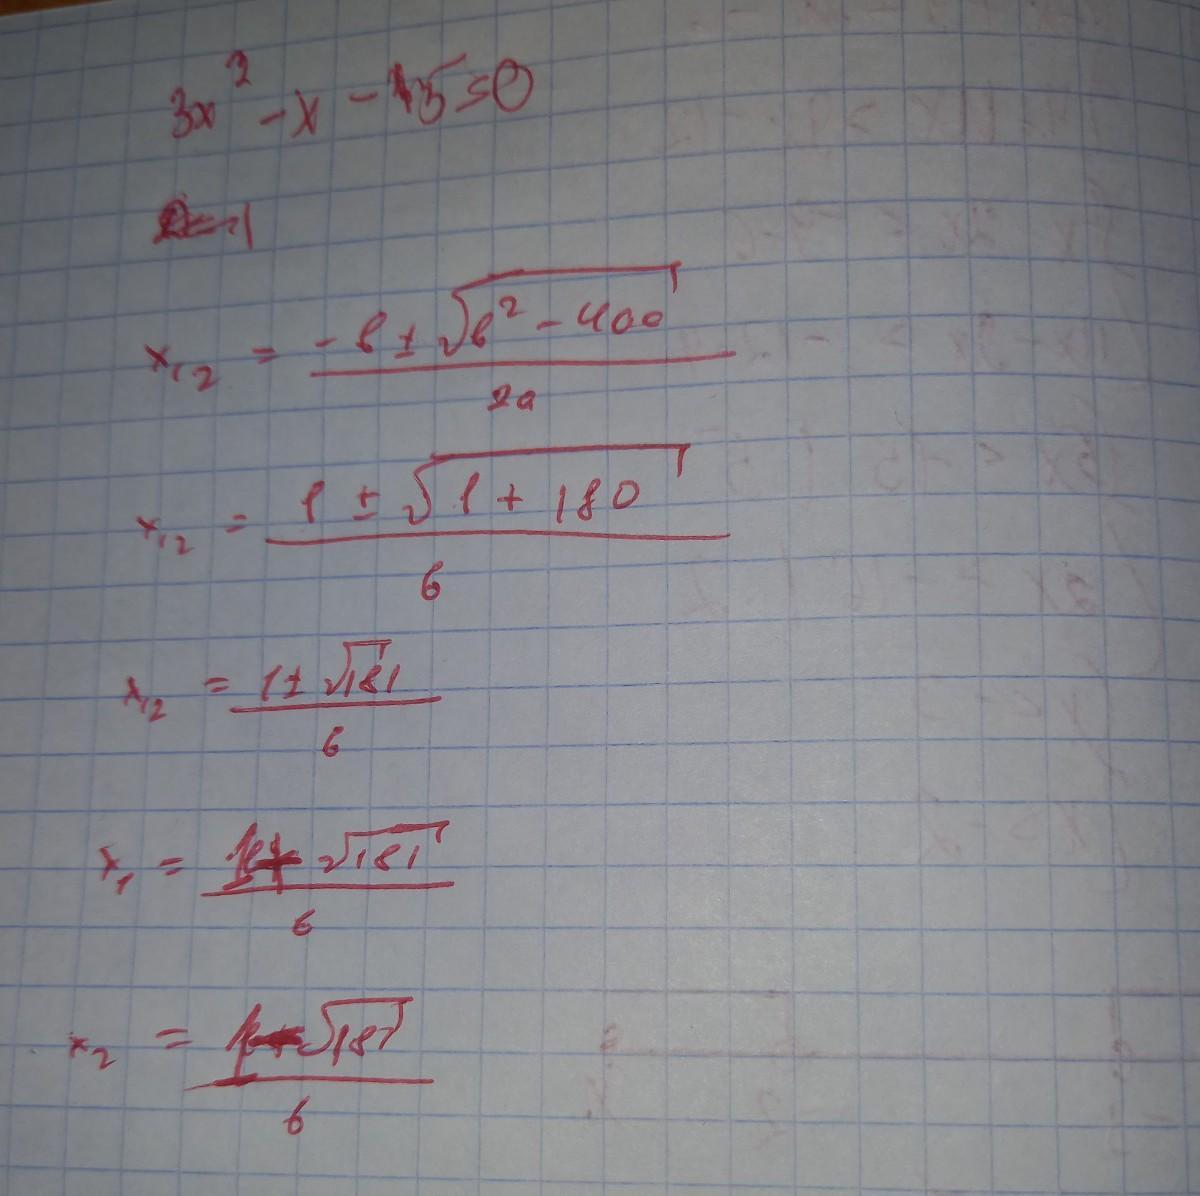 3x² - x - 15 = 0
D = 1
x₁,₂ = (-b ± √(b² - 4ac)) / 2a
x₁,₂ = (1 ± √(1 + 180)) / 6
x₁,₂ = (1 ± √181) / 6
x₁ = (1 + √181) / 6
x₂ = (1 - √181) / 6